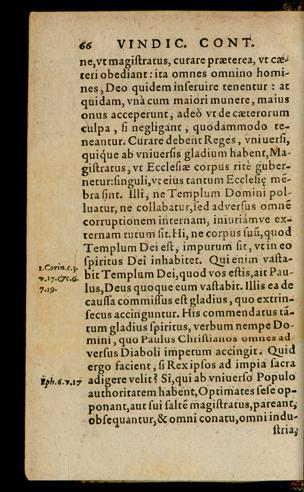 66 VINDIC. CONT.
ne, vt magiſtratus, curare præterea, vt cæ-
teri obediant: ita omnes omnino homi-
nes, Deo quidem inſeruire tenentur: at
quidam, vnà cum maiori munere, maius
onus acceperunt, adeò vt de cæterorum
culpa, ſi negligant, quodammodo te-
neantur. Curare debent Reges, vniuerſi,
quíque ab vniuerſis gladium habent, Ma-
giſtratus, vt Eccleſiæ corpus ritè guber-
netur: ſinguli, vt eius tantum Eccleſię mē-
bra ſint. Illi, ne Templum Domini pol-
luatur, ne collabatur, ſed aduerſus omnē
corruptionem internam, iniuriámve ex-
ternam tutum ſit. Hi, ne corpus ſuū, quod
Templum Dei eſt, impurum ſit, vt in eo
ſpiritus Dei inhabitet. Qui enim vaſta-
1. Corin. c. 3. bit Templum Dei, quod vos eſtis, ait Pau-
v. 17. & c. 6. lus, Deus quoque eum vaſtabit. Illis ea de
v. 19. cauſſa commiſſus eſt gladius, quo extrin-
ſecus accinguntur. His commendatus tā-
tum gladius ſpiritus, verbum nempe Do-
mini, quo Paulus Chriſtianos omnes ad
verſus Diaboli impetum accingit. Quid
ergo facient, ſi Rex ipſos ad impia ſacra
Eph. 6. v. 17 adigere velit? Si, qui ab vniuerſo Populo
authoritatem habent, Optimates ſeſe op-
ponant, aut ſui ſaltē magiſtratus, pareant,
obſequantur, & omni conatu, omni indu-
ſtria,